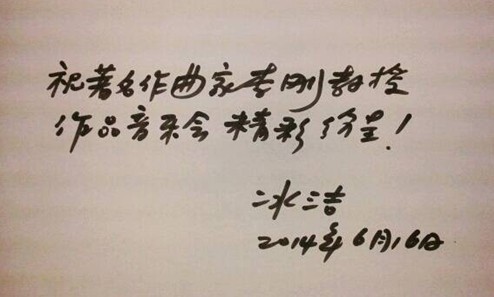 祝著名作曲家李刚教授
作品音乐会精彩纷呈！
冰洁
2014年6月16日